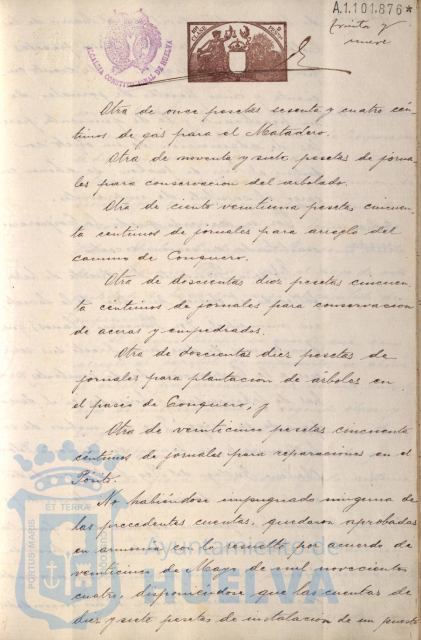 A.1.101.876*
treinta y
nueve
ALCALDIA CONSTITUCIONAL DE HUELVA
Otra de once pesetas sesenta y cuatro cén-
timos de gas para el Matadero.
Otra de noventa y siete pesetas de jorna-
les para conservacion del arbolado.
Otra de ciento veintiuna pesetas cincuen-
ta céntimos de jornales para arreglo del
camino de Conquero.
Otra de doscientas diez pesetas cincuen-
ta céntimos de jornales para conservacion
de aceras y empedrados.
Otra de doscientas diez pesetas de
jornales para plantacion de árboles en
el paseo de Conquero, y
Otra de veinticinco pesetas cincuenta
céntimos de jornales para reparaciones en el
No habiéndose impugnado ninguna de
las precedentes cuentas, quedaron aprobadas
en armonia con lo resuelto por acuerdo de
veinticinco de Mayo de mil novecientos
cuatro, disponiéndose que las cuentas de
diez y siete pesetas de instalacion de un puesto
PORTUS MARIS
ET TERRAE
CUSTODIA
Ayuntamiento de
HUELVA